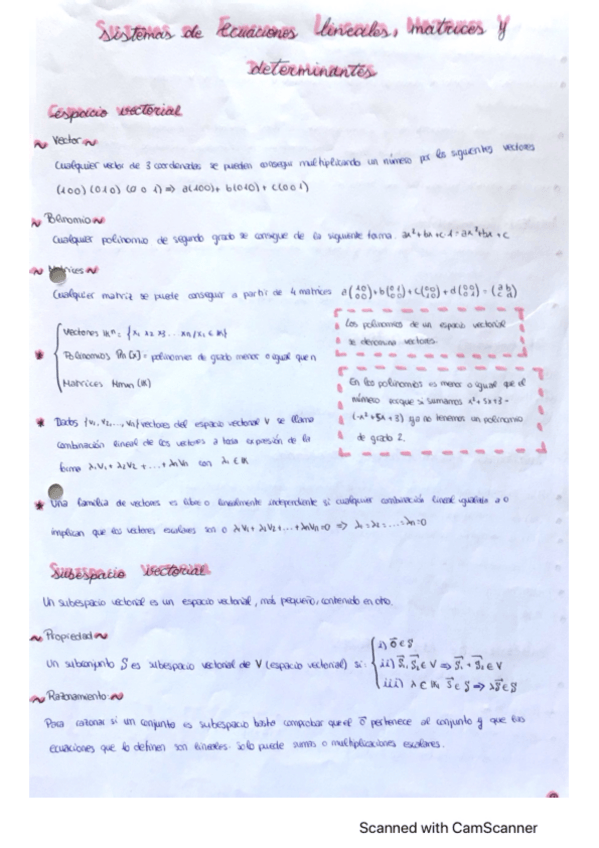 Sistemas de Ecuaciones lineales, Matrices y
determinantes
Espacio vectorial
~ Vector ~
Cualquier vector de 3 coordenadas se pueden conseguir multiplicando un número por los siguientes vectores
(100) (010) (0 0 1) => a(100) + b(010) + c(001)
~ Binomio ~
Cualquier polinomio de segundo grado se consigue de la siguiente forma. ax²+bx+c·1 = ax²+bx+c
~ Matrices ~
Cualquier matriz se puede conseguir a partir de 4 matrices a(10/00)+b(01/00)+c(00/10)+d(00/01) = (a b/c d)
Vectores Kⁿ: {x₁ x₂ x₃... xn / xᵢ ∈ K}
* Polinomios Pn[x] = polinomios de grado menor o igual que n
Matrices Mmxn (K)
Los polinomios de un espacio vectorial
se denomina vectores.
En los polinomios es menor o igual que el
número porque si sumamos x²+5x+3 -
(-x²+5x+3) ya no tenemos un polinomio
de grado 2.
* Dados {v₁, v₂..., vn} vectores del espacio vectorial V se llama
combinación lineal de los vectores a toda expresión de la
forma λ₁v₁ + λ₂v₂ + ... + λnvn con λ ∈ K
* Una familia de vectores es libre o linealmente independiente si cualquier combinación lineal igualada a 0
implican que los vectores escalares son 0 λ₁v₁ + λ₂v₂ + ... + λnvn = 0 => λ₁ = λ₂ = ... = λn = 0
Subespacio vectorial
Un subespacio vectorial es un espacio vectorial, más pequeño, contenido en otro.
~ Propiedad ~
Un subconjunto S es subespacio vectorial de V (espacio vectorial) si:
i) 0⃗ ∈ S
ii) S⃗₁, S⃗₂ ∈ V => S⃗₁ + S⃗₂ ∈ V
iii) λ ∈ K, S⃗ ∈ S => λS⃗ ∈ S
~ Razonamiento: ~
Para razonar si un conjunto es subespacio basta comprobar que el 0⃗ pertenece al conjunto y que las
ecuaciones que lo definen son lineales. Solo puede sumas o multiplicaciones escalares.
Scanned with CamScanner